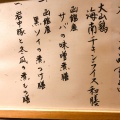 大山鶏
海南チキンライス和膳
函館産
サバの味噌煮膳
函館産
黒ソイの煮つけ膳
岩中豚と冬瓜の煮もの膳